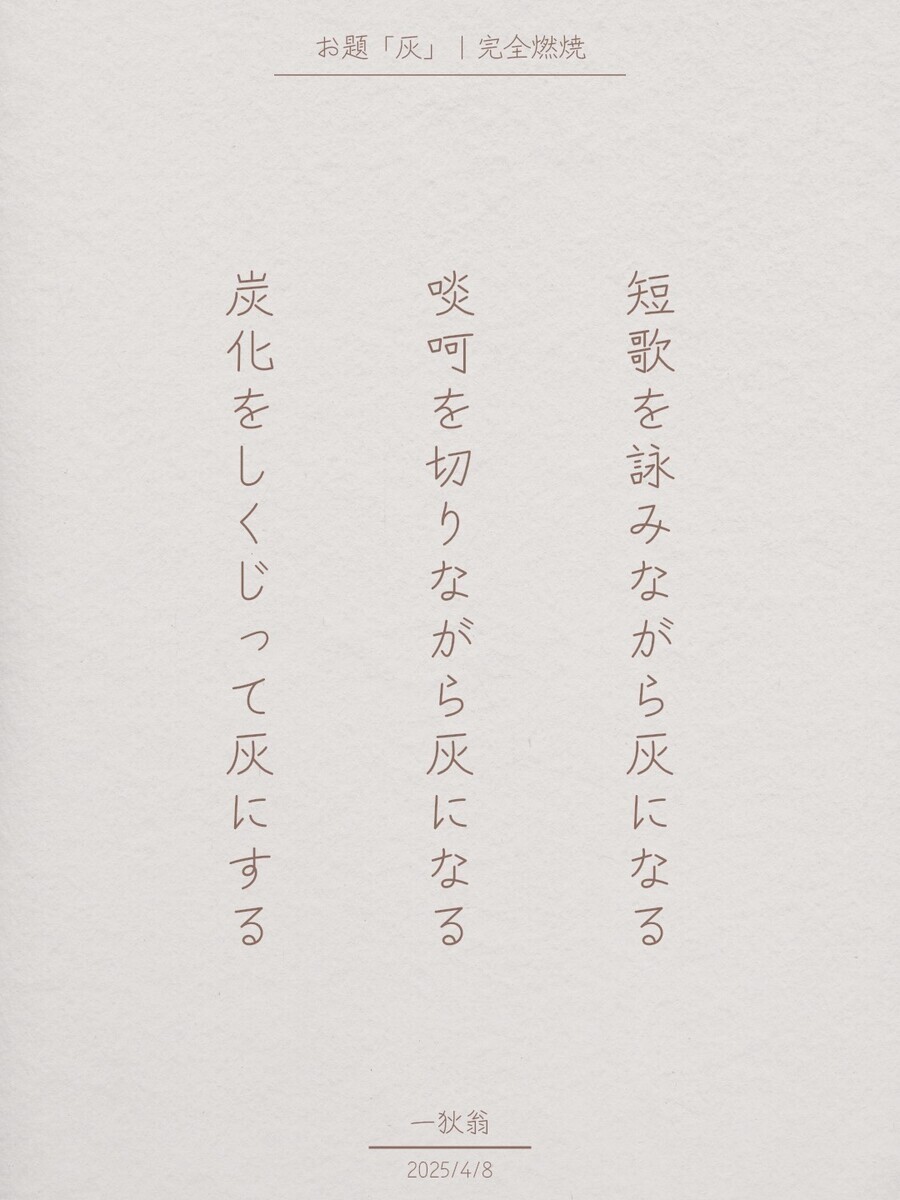 お題「灰」｜完全燃焼
短歌を詠みながら灰になる
啖呵を切りながら灰になる
炭化をしくじって灰にする
一狄翁
2025/4/8